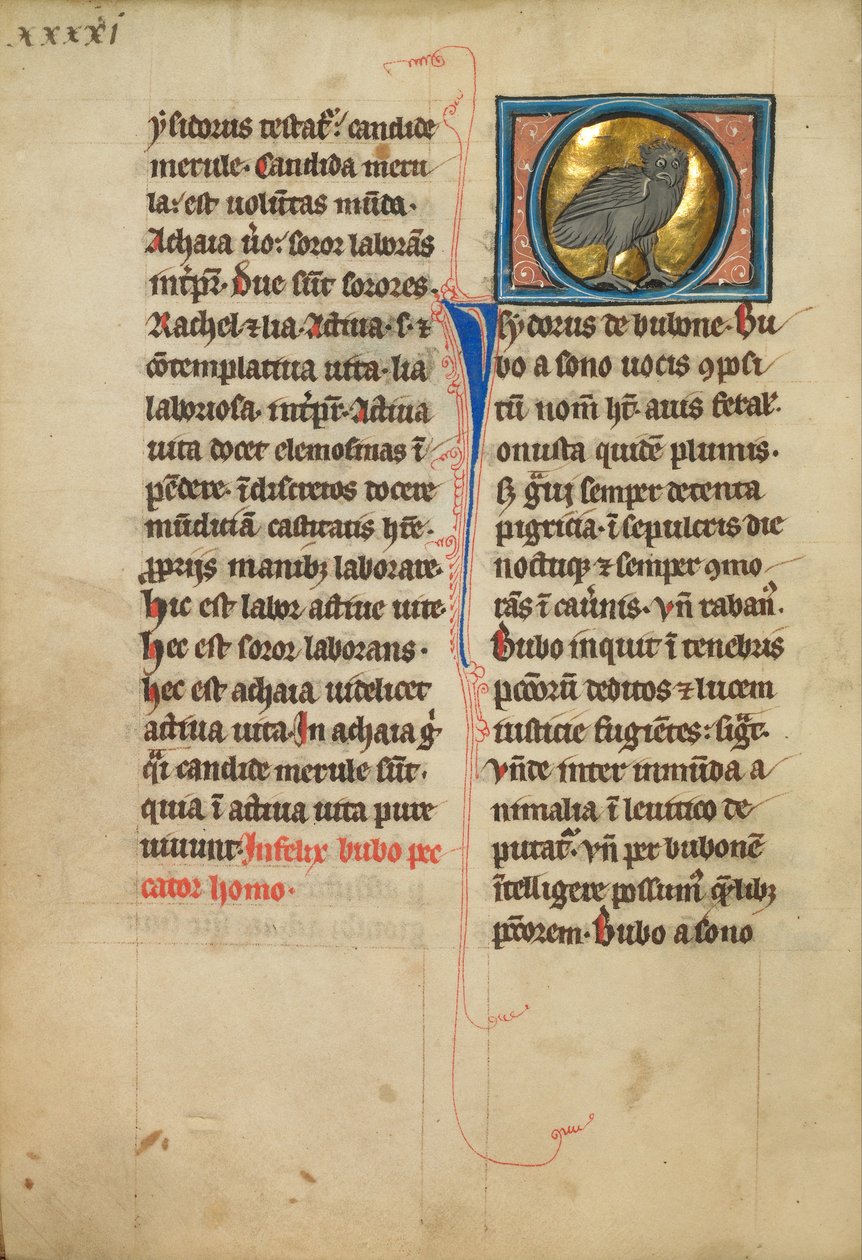 xxxxi
ysidorus testat᷑: candide
merule. Candida meru
la: est uolūtas mūda.
Achaia ůo: soror laborās
int̾p̄r. Due sūt sorores.
Rachel ⁊ lia. Actiua .s. ⁊
cōtemplatiua uita. lia
laboriosa. int̾p̄r. Actiua
uita docet elemosinas ī
pēdere. īdiscretos docere
mūdiciā castitatis hr̄e.
ꝓprijs manibꝫ laborare.
hic est labor actiue uite.
hec est soror laborans.
hec est achaia uidelicet
actiua uita. In achaia gͥ
qͣi candide merule sūt.
quia ī actiua uita pure
uiuunt. Infelix bubo pec
cator homo.
ysydorus de bubone. Bu
bo a sono uocis ꝯposi
tū nom̄ hт̄. auis feral᷑.
onusta quidē plumis.
sꝫ gͣui semper detenta
pigricia. ī sepulcris die
noctuqꝫ ⁊ semper ꝯmo
rās ī cau̾nis. vn̄ rabanꝰ.
Bubo inquit ī tenebris
pccōrū deditos ⁊ lucem
iusticie fugiētes: sigͣt.
vn̄de inter inmūda a
nimalia ī leuitico de
putat᷑. vn̄ per bubonē
ītelligere possumꝰ qēlibꝫ
pccōrem. Bubo a sono